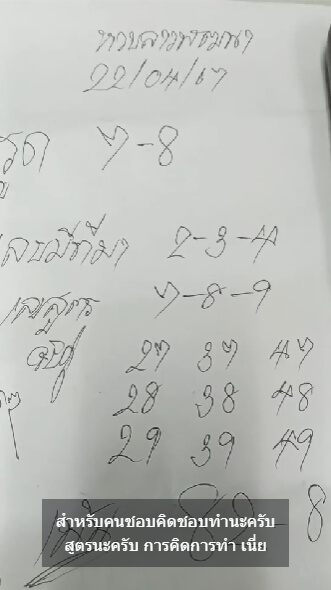 หวยลาวพัฒนา
22/04/67
รูด 7-8
2-3-4
เลขสูตร 7-8-9
จับคู่ 27 37 47
28 38 48
29 39 49
เน้น 89-8
สำหรับคนชอบคิดชอบทำนะครับ
สูตรนะครับ การคิดการทำ เนี่ย